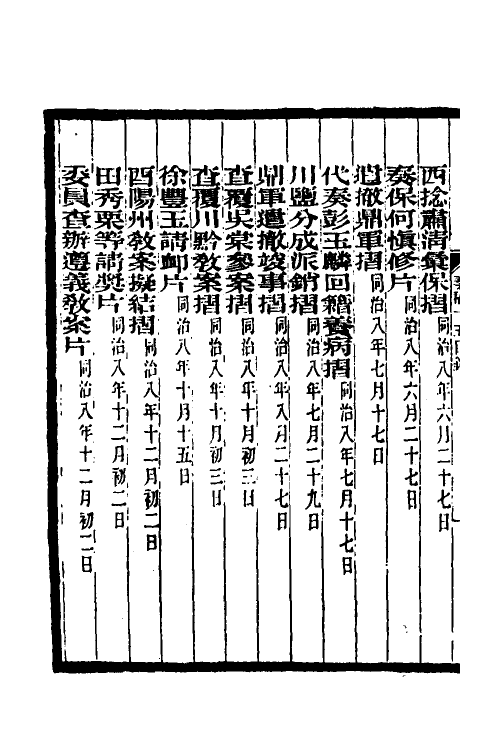 西捻肅清彙保摺同治八年六月二十七日
奏保何慎修片同治八年六月二十七日
遣撤鼎軍摺同治八年七月十七日
代奏彭玉麟回籍養病摺同治八年七月十七日
川鹽分成派銷摺同治八年七月二十九日
鼎軍遣撤竣事摺同治八年八月二十七日
查覆吳棠參案摺同治八年十月初三日
查覆川黔教案摺同治八年十月初三日
徐豐玉請卹片同治八年十月十五日
酉陽州教案擬結摺同治八年十二月初二日
田秀栗等請獎片同治八年十二月初二日
委員查辦遵義教案片同治八年十二月初二日